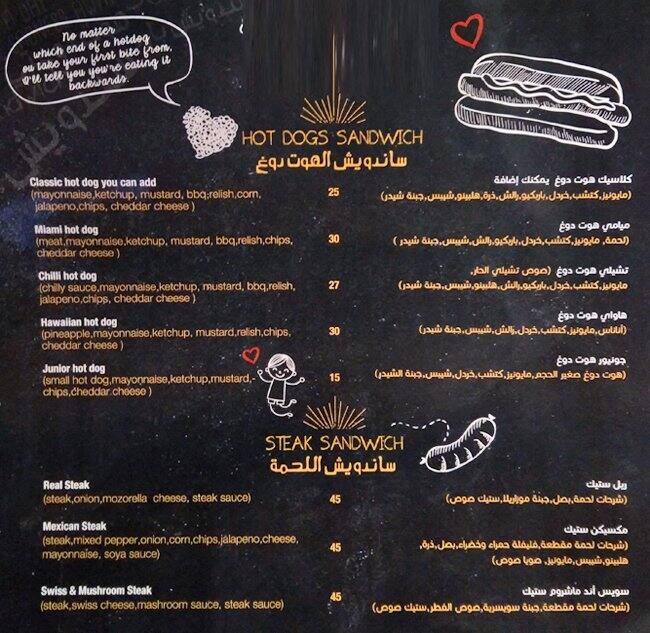 No matter
which end of a hotdog
ou take your first bite from,
I'll tell you you're eating it
backwards.
HOT DOGS SANDWICH
ساندويش الهوت دوغ
Classic hot dog you can add
(mayonnaise,ketchup, mustard, bbq,relish,corn,
jalapeno,chips, cheddar cheese )
25
كلاسيك هوت دوغ يمكنك إضافة
(مايونيز,كتشب,خردل,باربكيو,رالش,ذرة,هلبينو,شيبس,جبنة شيدر)
Miami hot dog
(meat,mayonnaise,ketchup, mustard, bbq,relish,chips,
cheddar cheese )
30
ميامي هوت دوغ
(لحمة, مايونيز,كتشب,خردل,باربكيو,رالش,شيبس,جبنة شيدر )
Chilli hot dog
(chilly sauce,mayonnaise,ketchup, mustard, bbq,relish,
jalapeno,chips, cheddar cheese )
27
تشيلي هوت دوغ (صوص تشيلي الحار,
مايونيز,كتشب,خردل,باربكيو,رالش,هلبينو,شيبس,جبنة شيدر)
Hawaiian hot dog
(pineapple,mayonnaise,ketchup, mustard,relish,chips,
cheddar cheese )
30
هاواي هوت دوغ
(أناناس,مايونيز,كتشب,خردل,رالش,شيبس,جبنة شيدر)
Junior hot dog
(small hot dog,mayonnaise,ketchup,mustard,
chips,cheddar cheese )
15
جونيور هوت دوغ
(هوت دوغ صغير الحجم,مايونيز,كتشب,خردل,شيبس,جبنة الشيدر)
STEAK SANDWICH
ساندويش اللحمة
Real Steak
(steak,onion,mozorella cheese, steak sauce)
45
ريل ستيك
(شرحات لحمة,بصل,جبنة موزاريلا,ستيك صوص)
Mexican Steak
(steak,mixed pepper,onion,corn,chips,jalapeno,cheese,
mayonnaise, soya sauce)
45
مكسيكن ستيك
(شرحات لحمة مقطعة,فليفلة حمراء وخضراء,بصل,ذرة,
هلبينو,شيبس,مايونيز, صويا صوص)
Swiss & Mushroom Steak
(steak,swiss cheese,mashroom sauce, steak sauce)
45
سويس أند ماشروم ستيك
(شرحات لحمة مقطعة,جبنة سويسرية,صوص الفطر,ستيك صوص)